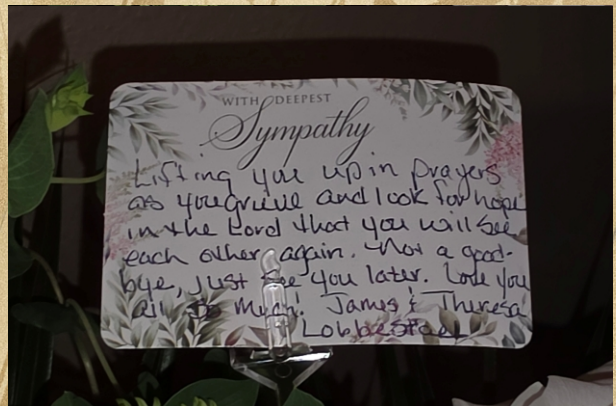 WITH DEEPEST
Sympathy
Lifting you up in prayers
as you grieve and look for hope
in the Lord that you will see
each other again. Not a good-
bye, just see you later. Love you
all so Much! James & Theresa